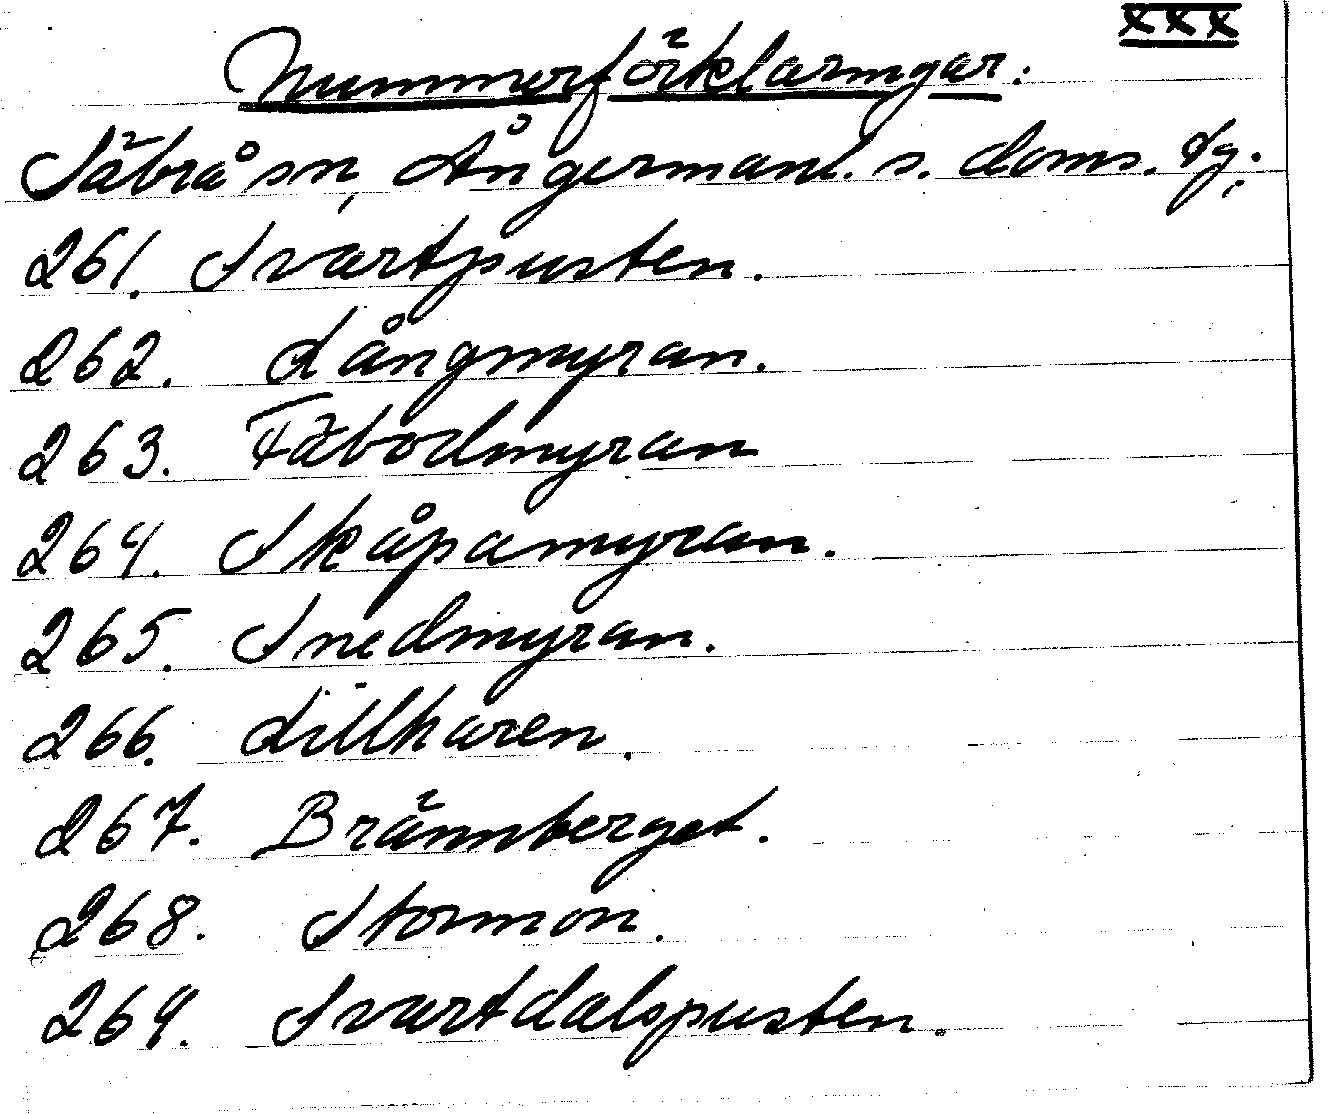 xxx
Nummerförklaringar:
Säbrå sn, Ångermanl. s. doms. dg:
261. Svartpusten.
262. Långmyran.
263. Fäbodmyran
264. Skåpamyran.
265. Snedmyran.
266. Lillharen.
267. Brännberget.
268. Stormon.
269. Svartdalspusten.